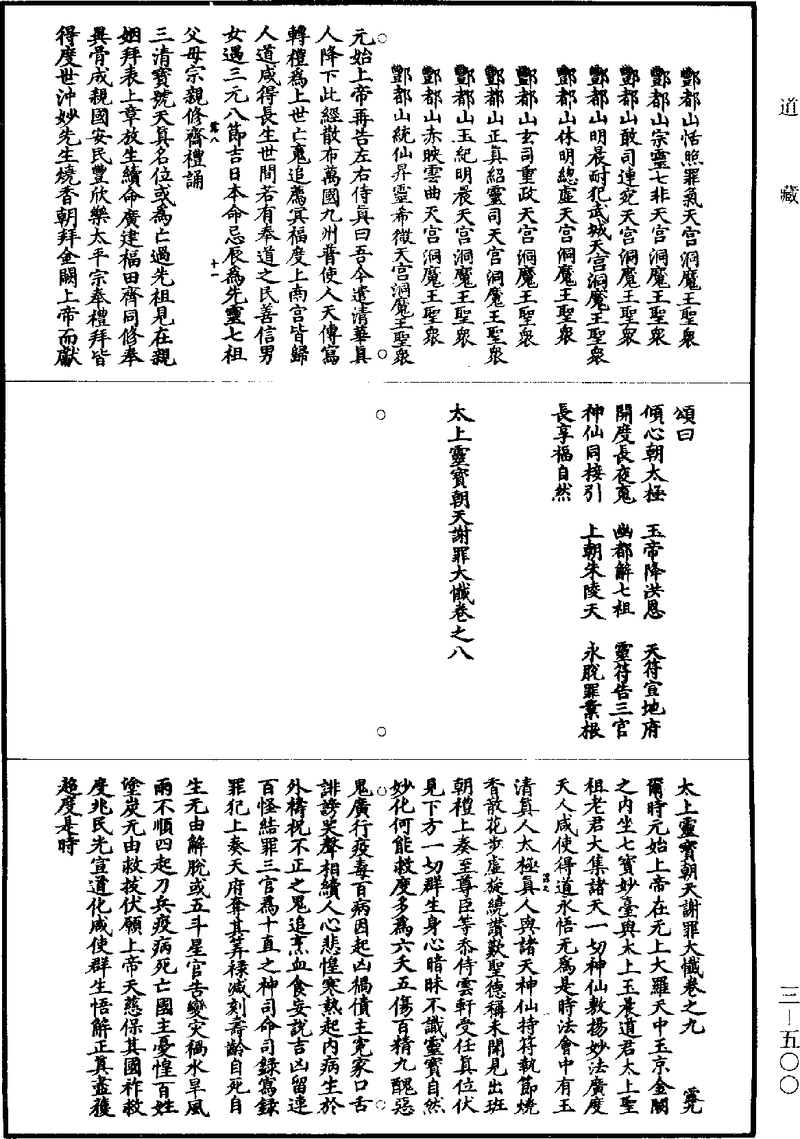 道藏
酆都山恬照罪氣天宮洞魔王聖衆
酆都山宗靈七非天宮洞魔王聖衆
酆都山敢司連宛天宮洞魔王聖衆
酆都山明晨耐犯武城天宮洞魔王聖衆
酆都山休明總虛天宮洞魔王聖衆
酆都山玄司重政天宮洞魔王聖衆
酆都山正真紹靈司天宮洞魔王聖衆
酆都山玉紀明晨天宮洞魔王聖衆
酆都山赤映雲曲天宮洞魔王聖衆
酆都山統仙昇靈希微天宮洞魔王聖衆
元始上帝再告左右侍真曰吾今遣清華真
人降下此經散布萬國九州普使人天傳寫
轉禮爲上世亡䰟追薦冥福度上南宮皆歸
人道咸得長生世間若有奉道之民善信男
女遇三元八節吉日本命忌辰爲先靈七祖
露八 十一
父母宗親修齋禮誦
三清寳號天真名位或爲亡過先祖見在親
姻拜表上章放生續命廣建福田齋同修奉
異骨成親國安民豐欣樂太平宗奉禮拜皆
得度世沖妙先生燒香朝拜金闕上帝而獻
頌曰
傾心朝太極 玉帝降洪恩 天符宣地府
開度長夜䰟 幽都解七祖 靈符告三官
神仙同接引 上朝朱陵天 永脫罪業根
長享福自然
太上靈寳朝天謝罪大懺卷之八
太上靈寳朝天謝罪大懺卷之九 露九
爾時元始上帝在元上大羅天中玉京金闕
之内坐七寳妙臺與太上玉晨道君太上聖
祖老君大集諸天一切神仙敷揚妙法廣度
天人咸使得道永悟无爲是時法會中有玉
清真人太極真人與諸天神仙持符執節燒
香散花步虛旋繞讚歎聖德稱未聞見出班
朝禮上奏至尊臣等忝侍雲軒受任真位伏
見下方一切群生身心暗昧不識靈寳自然
妙化何能救度多爲六夭五傷百精九醜惡
鬼廣行疫毒百病因起凶禍債主寃家口舌
誹謗哭聲相續人心悲惶寒熱起内病生於
外禱祝不正之鬼追烹血食妄說吉凶留連
百怪結罪三官爲十直之神司命司錄寫錄
罪犯上奏天府奪其筭祿減刻壽齡自死自
生无由解脫或五斗星官告變灾禍水旱風
雨不順四起刀兵疫病死亡國主憂惶百姓
塗炭无由救拔伏願上帝天慈保其國祚救
度兆民光宣道化咸使群生悟解正真盡獲
超度是時
三—五〇〇